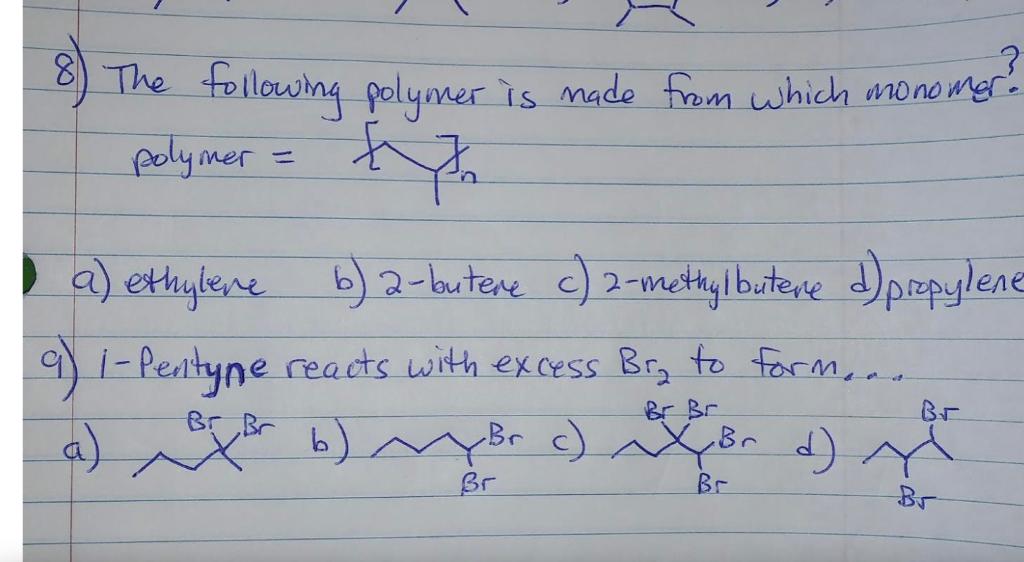 8) The following polymer is made from which monomer?
polymer = [ ]n
a) ethylene b) 2-butene c) 2-methylbutene d) propylene
9) 1-Pentyne reacts with excess Br2 to form...
Br Br Br Br Br
a) b) Br c) Br d)
Br Br Br